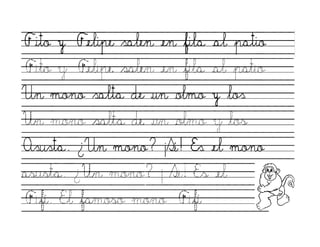 Fito y Felipe salen en fila al patio
Fito y Felipe salen en fila al patio
Un mono salta de un olmo y los
Un mono salta de un olmo y los
Asusta. ¿Un mono? ¡Sí! Es el mono
asusta. ¿Un mono? ¡Sí! Es el
Fifí. El famoso mono Fifí